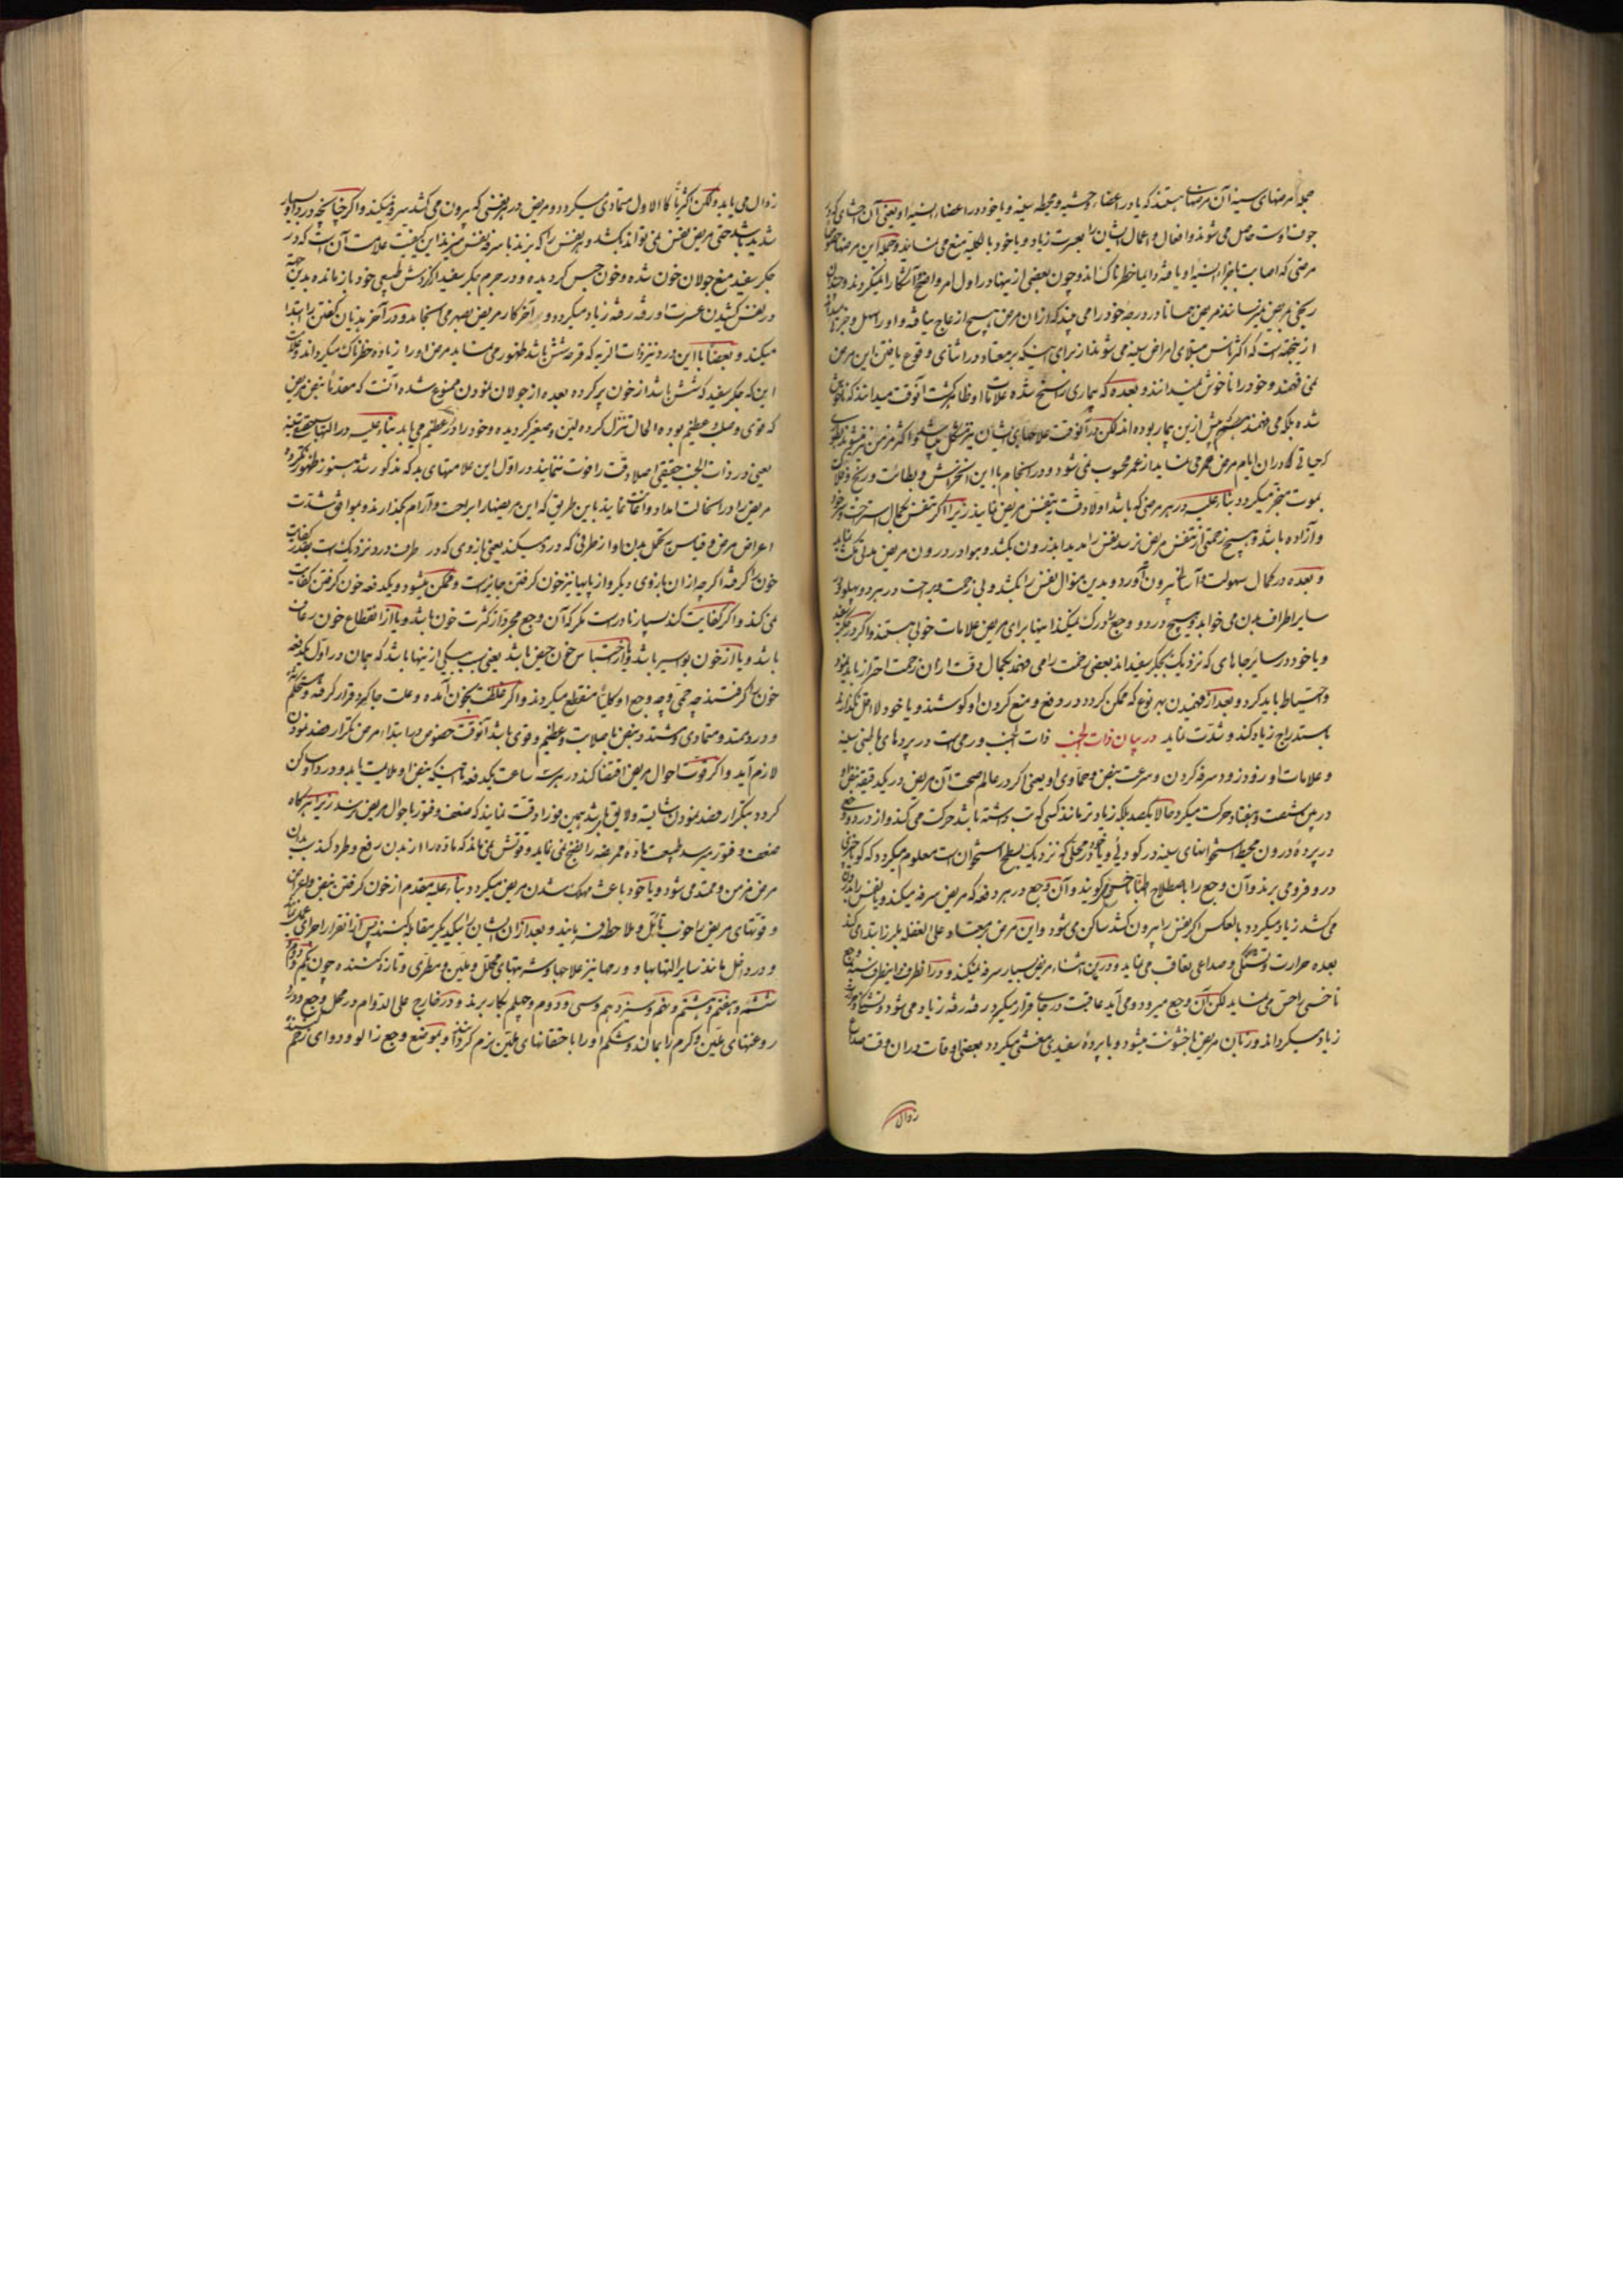 جمله مرضهای سینه آن مرضهایی هستند که یا در اعضاء حوشیه و محیطه سینه و یا خود در اعضاء سینه او یعنی آن
جوف اوست حاصل می شوند و افعال و اعمال ایشان را بعسرت زیاد و یا خود بالکلیه منع می نمایند و جمله این مرضها
مرضی که اصابت باجزاء سینه او یافته دایما خطرناک اند و چون بعضی از اینها در اول امر واضح و آشکارا نمیگردند
رنجی بمریض نمیرسانند مریض همانا در درجه خود را می بیند که از ان مرض هیچ ازعاج نیافته و او را سهل
از ینجهت است که اکثر ناس مبتلای امراض سینه می شوند از برای اینکه بر معتاد در اثنای وقوع یافتن این مرض
نمی فهمند و خود را ناخوش نمیدانند و بعده که بیماری راسخ شده علامات او ظاهر گشت آنوقت میدانند که
شده بلکه می فهمند که پیش ازین بیمار بوده اند لکن در آنوقت علاجهای ایشان نیز مشکل میباشد و اکثر مزمن نیز میشوند
که حیاتی که در ان ایام مرض عمر می نماید از عمر محسوب نمی شود و در انجام با این انخراش و بطائت و رنج
بموت منجر میگردد بناء علیه در هر مرضی که باشد اولا دقت بتنفس مریض نمایند زیرا اگر تنفس بکمال استراحت
و آزاده باشد و هیچ زحمتی از تنفس مریض نرسد نفس را بدید اندرون بکشد و هوا در درون مریض
و بعده در کمال سهولت و آسانی بیرون آورد و بدین منوال نفس را بکشد و بی زحمت و براحت در هر دو پهلو
سایر اطراف بدن می خوابد و هیچ درد و وجع را درک نمیکند اینها برای مریض علامات خوبی هستند و اگر در جگر سفید
و یا خود در سایر جاهای که نزدیک بجگر سفید اند بعضی زحمت را می فهمد بکمال دقت از ان زحمت احتراز باید نمود
و احتیاط باید کرد و بعد از فهمیدن بهر نوع که ممکن گردد در دفع و منع کردن او کوشند و یا خود لا اقل نگذارند
باستدراج زیاد کند و شدت نماید در بیان ذات الجنب ذات الجنب ورمی است در پردهای باطنی سینه
و علامات او زود زود سرفه کردن و سرعت نبض و حماوی او یعنی اگر در عالم صحت آن مریض در یکدقیقه نبض او
در بین شصت و هفتاد حرکت میکرد حالا یکصد بلکه زیادتر مانند کسی که تب داشته باشد حرکت می کند و از درد و وجعی
در پرده درون محیط استخوانهای سینه در گودی و یا خود در محلی که نزدیک بسطح استخوان است معلوم میگردد که گویا
در و فرو می برند و آن وجع را باصطلاح اطبا ناخس گویند و آن وجع در هر دفعه که مریض سرفه میکند و یا نفس را بدرون
می کشد زیاد میگردد بالعکس اگر نفس را بیرون کشد ساکن می شود و این مرض بر معتاد علی الغفله بلرزا ابتدا می کند
بعده حرارت و تشنگی و صداعی تعاقب می نماید و در ین اثناء مریض بسیار سرفه نمیکند و در آنطرف و اینطرف سینه وجع
ناخسی را حس می نماید لکن آن وجع میرود و می آید عاقبت در جای قرار میگیرد رفته رفته زیاد می شود و تشنگی
زیاد میگرداند و زبان مریض با خشونت میشود و یا پرده سفیدی مغشی میگردد بعضی اوقات در ان وقت صداع
زوال
زوال می یابد ولکن اکثریا کالاول متمادی میگردد و مریض در هر نفسی که بیرون می کشد سرفه میکند و اگر چنانچه درد او بسیار
شدید باشد حتی مریض نفس نمی تواند بکشد و هر نفس را که بزند با سرفه نفس میزند این کیفیت علامت آن است که در
جگر سفید منع جولان خون شده و خون حبس گردیده و در جرم جگر سفید از گردش طبیعی خود باز مانده بدین جهة
در نفس کشیدن عسرت او رفته رفته زیاد میگردد و آخر کار مریض بصبر می انجامد و در آخر هذیان گفتن را ابتدا
میکند و بعضا با این درد نیز ذات الریه که قرحه شش باشد ظهور می نماید مرض او را زیاده خطرناک میگرداند و علامت
این که جگر سفید که شش باشد از خون پر کرده بعده از جولان نمودن ممنوع شده آنست که مقدما نبض مریض
که قوی و صلب و عظیم بوده الحال تنزل کرده لین و صغیر گردیده و خود را در عظیم می یابد بناء علیه در التهاب حقیقیه
یعنی در ذات الجنب حقیقی اصلا وقت را فوت ننمایند در اول این علامتهای بد که مذکور شد هنوز ظهور نکرده
مریض را در انحالت امداد و اعانت نمایند باین طریق که این مریضها را براحت و آرام بگذارند و موافق شدت
اعراض مرض و قیاس به تحمل بدن او از طرفی که درد میکند یعنی بازوی که در طرف درد نزدیک است بقدر کفایت
خون را گرفته اگر چه از ان بازوی دیگر و از پایها نیز خون گرفتن جایز است و ممکن میشود و یکدفعه خون گرفتن کفایت
نمی کند و اگر کفایت کند بسیار نادر است مگر که آن وجع مجرد از کثرت خون باشد و یا از انقطاع خون رعاف
باشد و یا از خون بواسیر باشد و یا از احتباس خون حیض باشد یعنی بسبب یکی از اینها باشد که همان در اول یکدفعه
خون را گرفتند چه حمی و چه وجع او کلیا منقطع میگردند و اگر غلظت بخون آمده و علت جایگیر و قرار گرفته و مستحکم
و درد ممتد و متمادی و مشتد و نبض با صلابت و عظیم و قوی باشد آنوقت خصوص در ابتداء مرض تکرار فصد نمودن
لازم آید و اگر قوت احوال مریض اقتضا کند در هر سه ساعت یکدفعه تا اینکه نبض او ملایمت یابد و درد او ساکن
گردد بتکرار فصد نمودن شایسته و لایق باشد همین قوز را دقت نمایند که ضعف و فتور باحوال مریض نرسد زیرا هرگاه
ضعف و فتور برسد طبیعت ماده ممرضه را نضج نمی نماید و قوتش نمی ماند که ماده را از بدن رفع و طرد کند
مرض مزمن و ممتد می شود و یا خود باعث مهلک شدن مریض میگردد بناء علیه مقدم از خون گرفتن نبض و اعراض
و قوتهای مریض را خوب تامل و ملاحظه فرمایند و بعد از ان ایشان را بیکدیگر مقابله کنند پس از ان بقرار اجرای عمل
و درد داخل مانند سایر التهابها و ورمها نیز علاجها و شربتهای محلل و ملین و مطری و تازه کننده چون یکم و دوم
ششم و هفتم و هشتم و نهم و سیزدهم و سی و دوم و چهلم بکار برند و در خارج علی الدوام در محل وجع درد
روغنهای ملین و گرم را بمالند و شکم او را با حقنهای ملین نرم گردانند و بموضع وجع زالو و دوای زخم